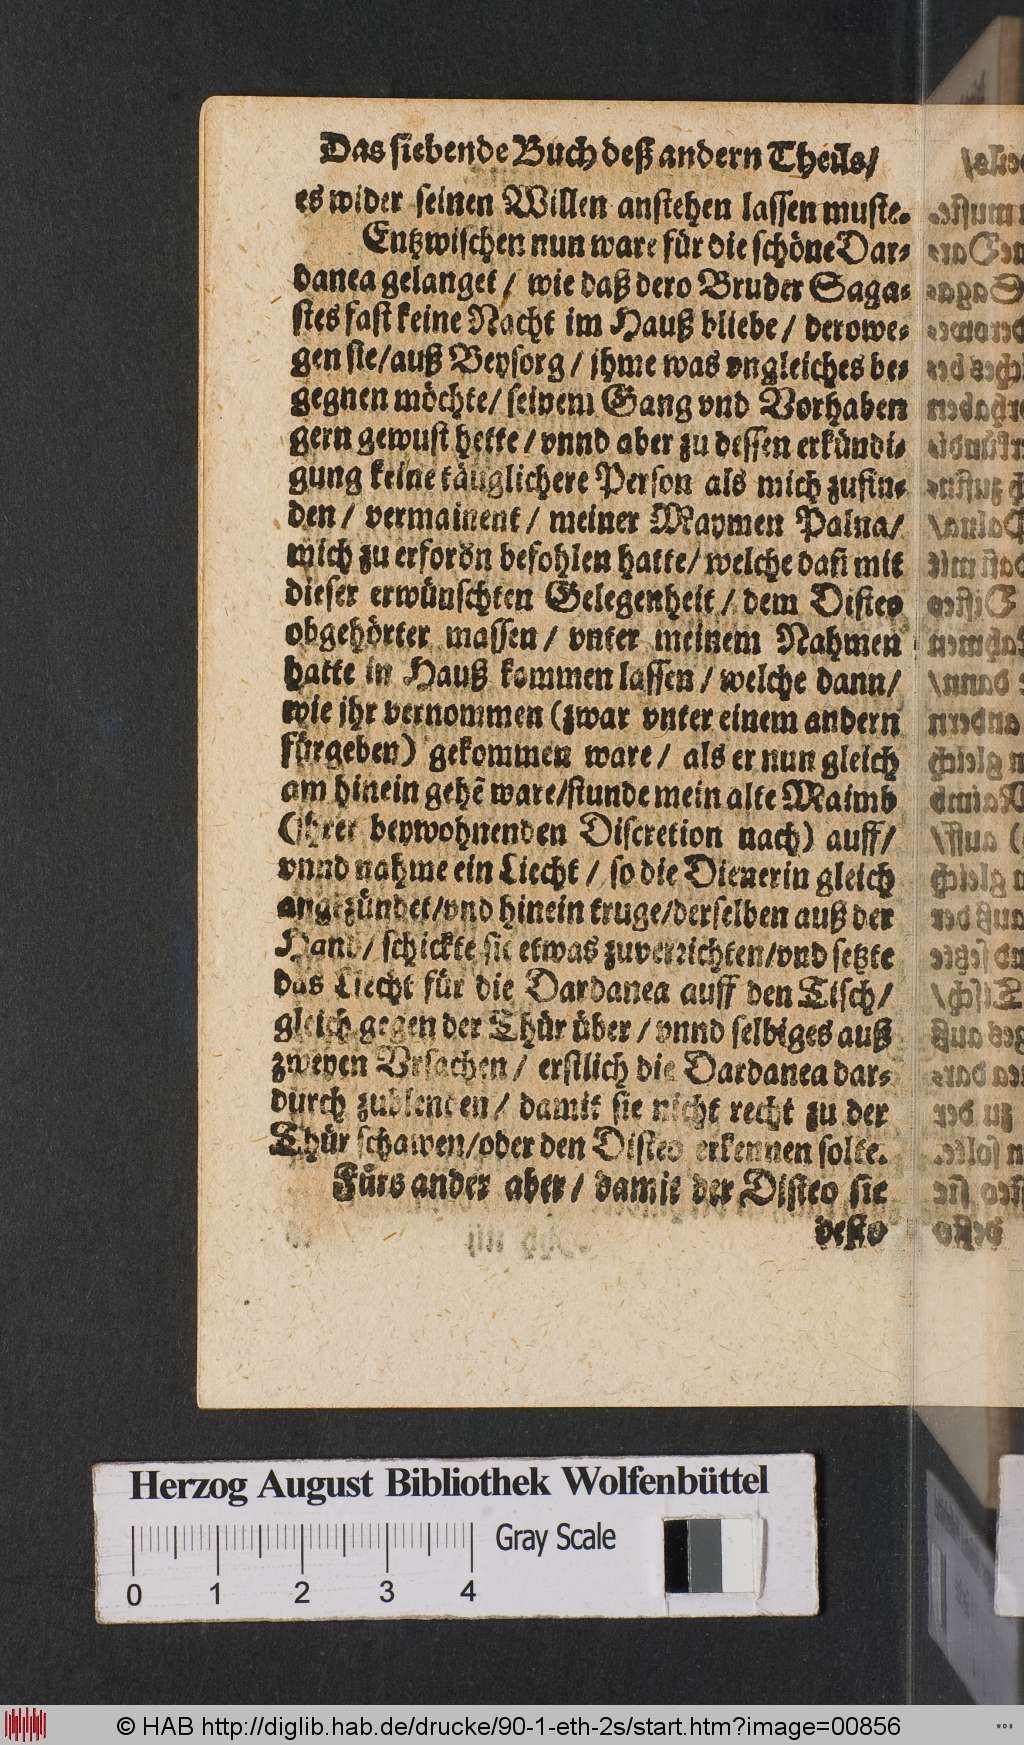 Das siebende Buch deß andern Theils/
es wider seinen Willen anstehen lassen muste.
Entzwischen nun ware für die schöne Dar-
danea gelanget / wie daß dero Bruder Saga-
stes fast keine Nacht im Hauß bliebe / derowe-
gen sie/auß Beysorg / jhme was vngleiches be-
gegnen möchte/ seinem Gang vnd Vorhaben
gern gewust hette / vnnd aber zu dessen erkündi-
gung keine täuglichere Person als mich zufin-
den / vermainent / meiner Maymen Palna/
mich zu erfordn befohlen hatte/ welche dañ mit
dieser erwünschten Gelegenheit / dem Disteo
obgehörter massen / vnter meinem Nahmen
hatte in Hauß kommen lassen / welche dann/
wie jhr vernommen (zwar vnter einem andern
fürgeben) gekommen ware / als er nun gleich
am hinein gehẽ ware/stunde mein alte Maimb
(jhrer beywohnenden Discretion nach) auff/
vnnd nahme ein Liecht / so die Dienerin gleich
angezündet/vnd hinein truge/derselben auß der
Hand/ schickte sie etwas zuverrichten/vnd setzte
das Liecht für die Dardanea auff den Tisch/
gleich gegen der Thür über / vnnd selbiges auß
zweyen Vrsachen / erstlich die Dardanea dar-
durch zublenden / damit sie nicht recht zu der
Thür schawen/oder den Disteo erkennen solte.
Fürs ander aber / damit der Disteo sie
desto
Herzog August Bibliothek Wolfenbüttel
Gray Scale
0 1 2 3 4
© HAB http://diglib.hab.de/drucke/90-1-eth-2s/start.htm?image=00856